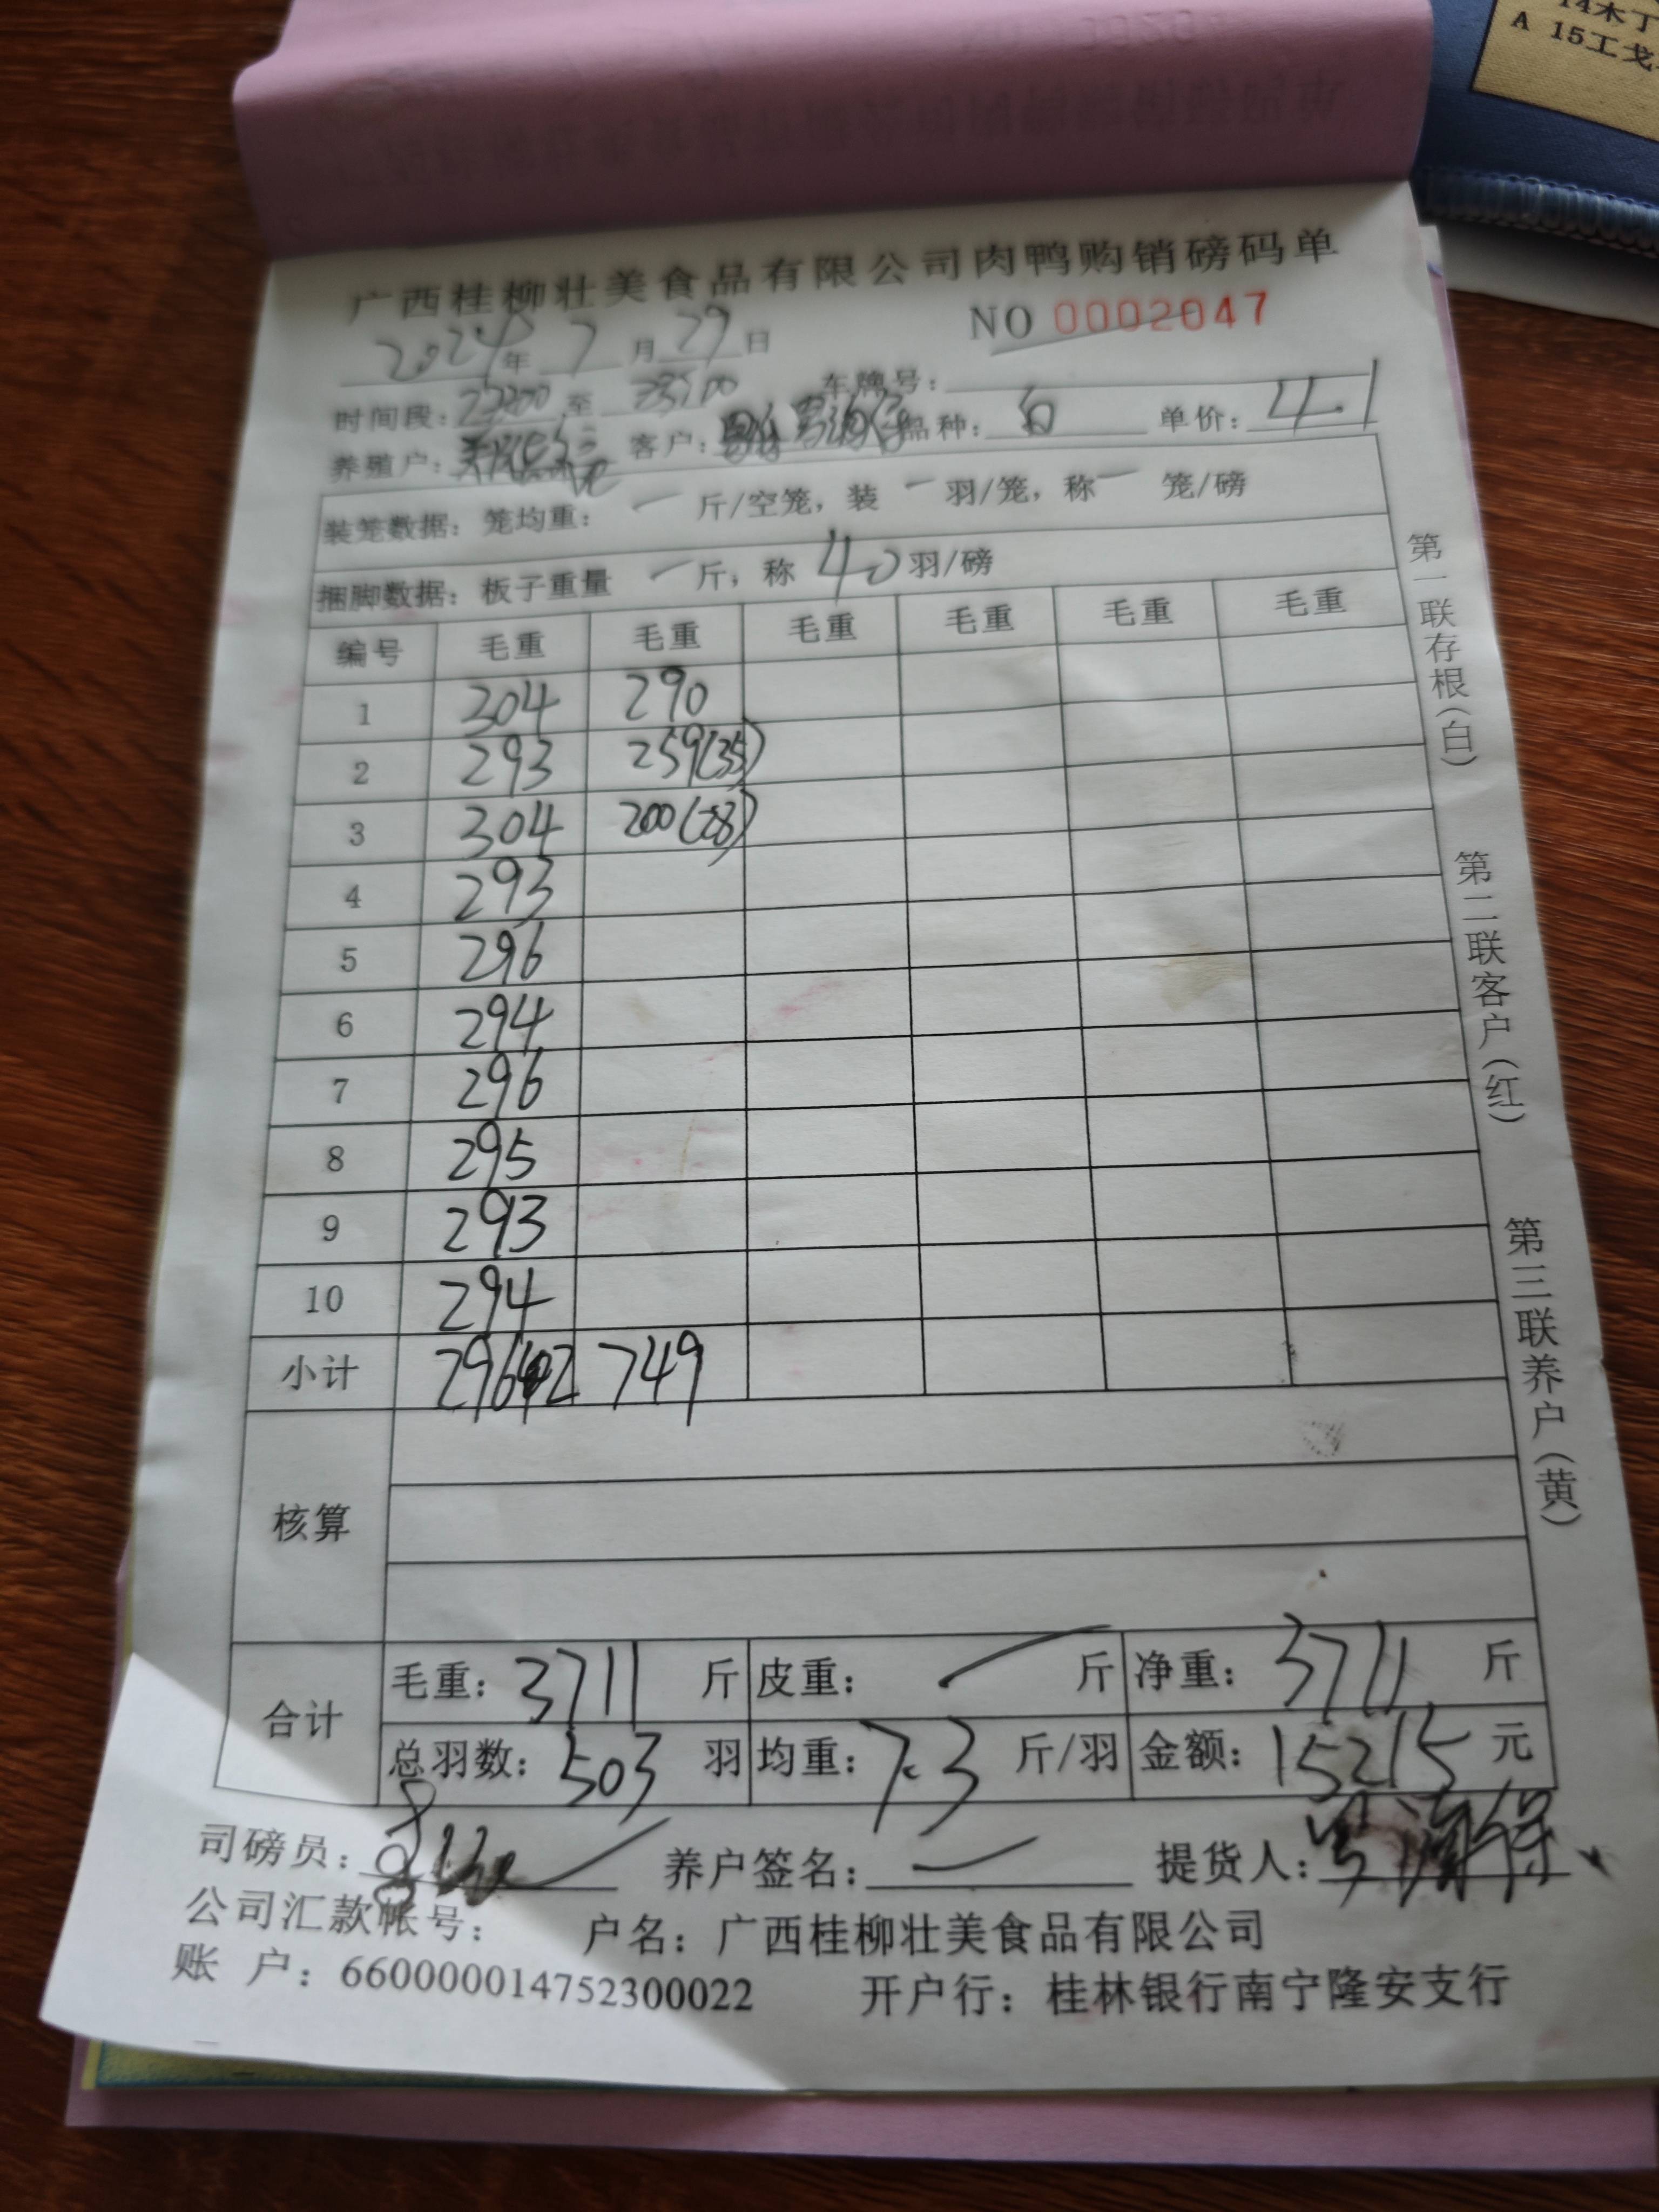 14木丁
A 15工戈
广西桂柳壮美食品有限公司肉鸭购销磅码单
2024年 7月29日 NO 0002047
时间段: 至 车牌号:
养殖户: 客户: 品种: 白 单价: 4.1
装笼数据: 笼均重: — 斤/空笼, 装 — 羽/笼, 称 — 笼/磅
捆脚数据: 板子重量 — 斤, 称 40 羽/磅
编号 毛重 毛重 毛重 毛重 毛重 毛重
1 304 290
2 293 259(35)
3 304 200(28)
4 293
5 296
6 294
7 296
8 295
9 293
10 294
小计 2962 749
核算
合计 毛重: 3711 斤 皮重: — 斤 净重: 3711 斤
总羽数: 503 羽 均重: 7.3 斤/羽 金额: 15215 元
司磅员: 养户签名: — 提货人:
公司汇款帐号: 户名: 广西桂柳壮美食品有限公司
账 户: 660000014752300022 开户行: 桂林银行南宁隆安支行
第一联存根(白)
第二联客户(红)
第三联养户(黄)